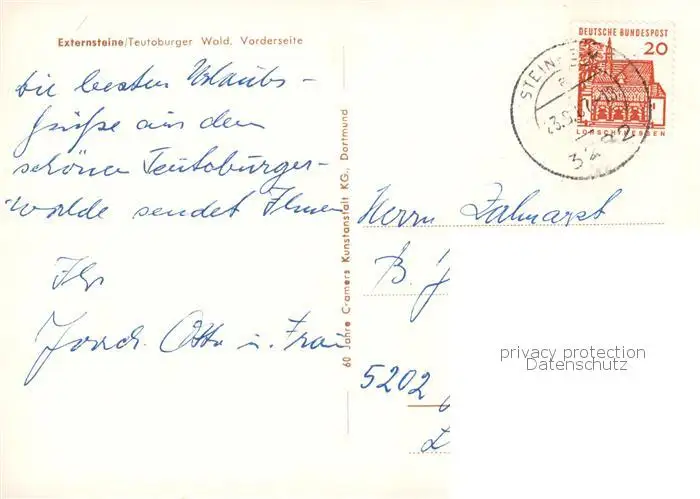 Externsteine/Teutoburger Wald. Vorderseite
die besten Urlaubs-
grüße aus dem
schönen Teutoburger-
walde sendet Ihnen
Ihr
Otto u. Frau
60 Jahre Cramers Kunstanstalt KG., Dortmund
DEUTSCHE BUNDESPOST
20
LORSCH/HESSEN
STEIN
Herrn Zahnarzt
B.
5202
privacy protection
Datenschutz